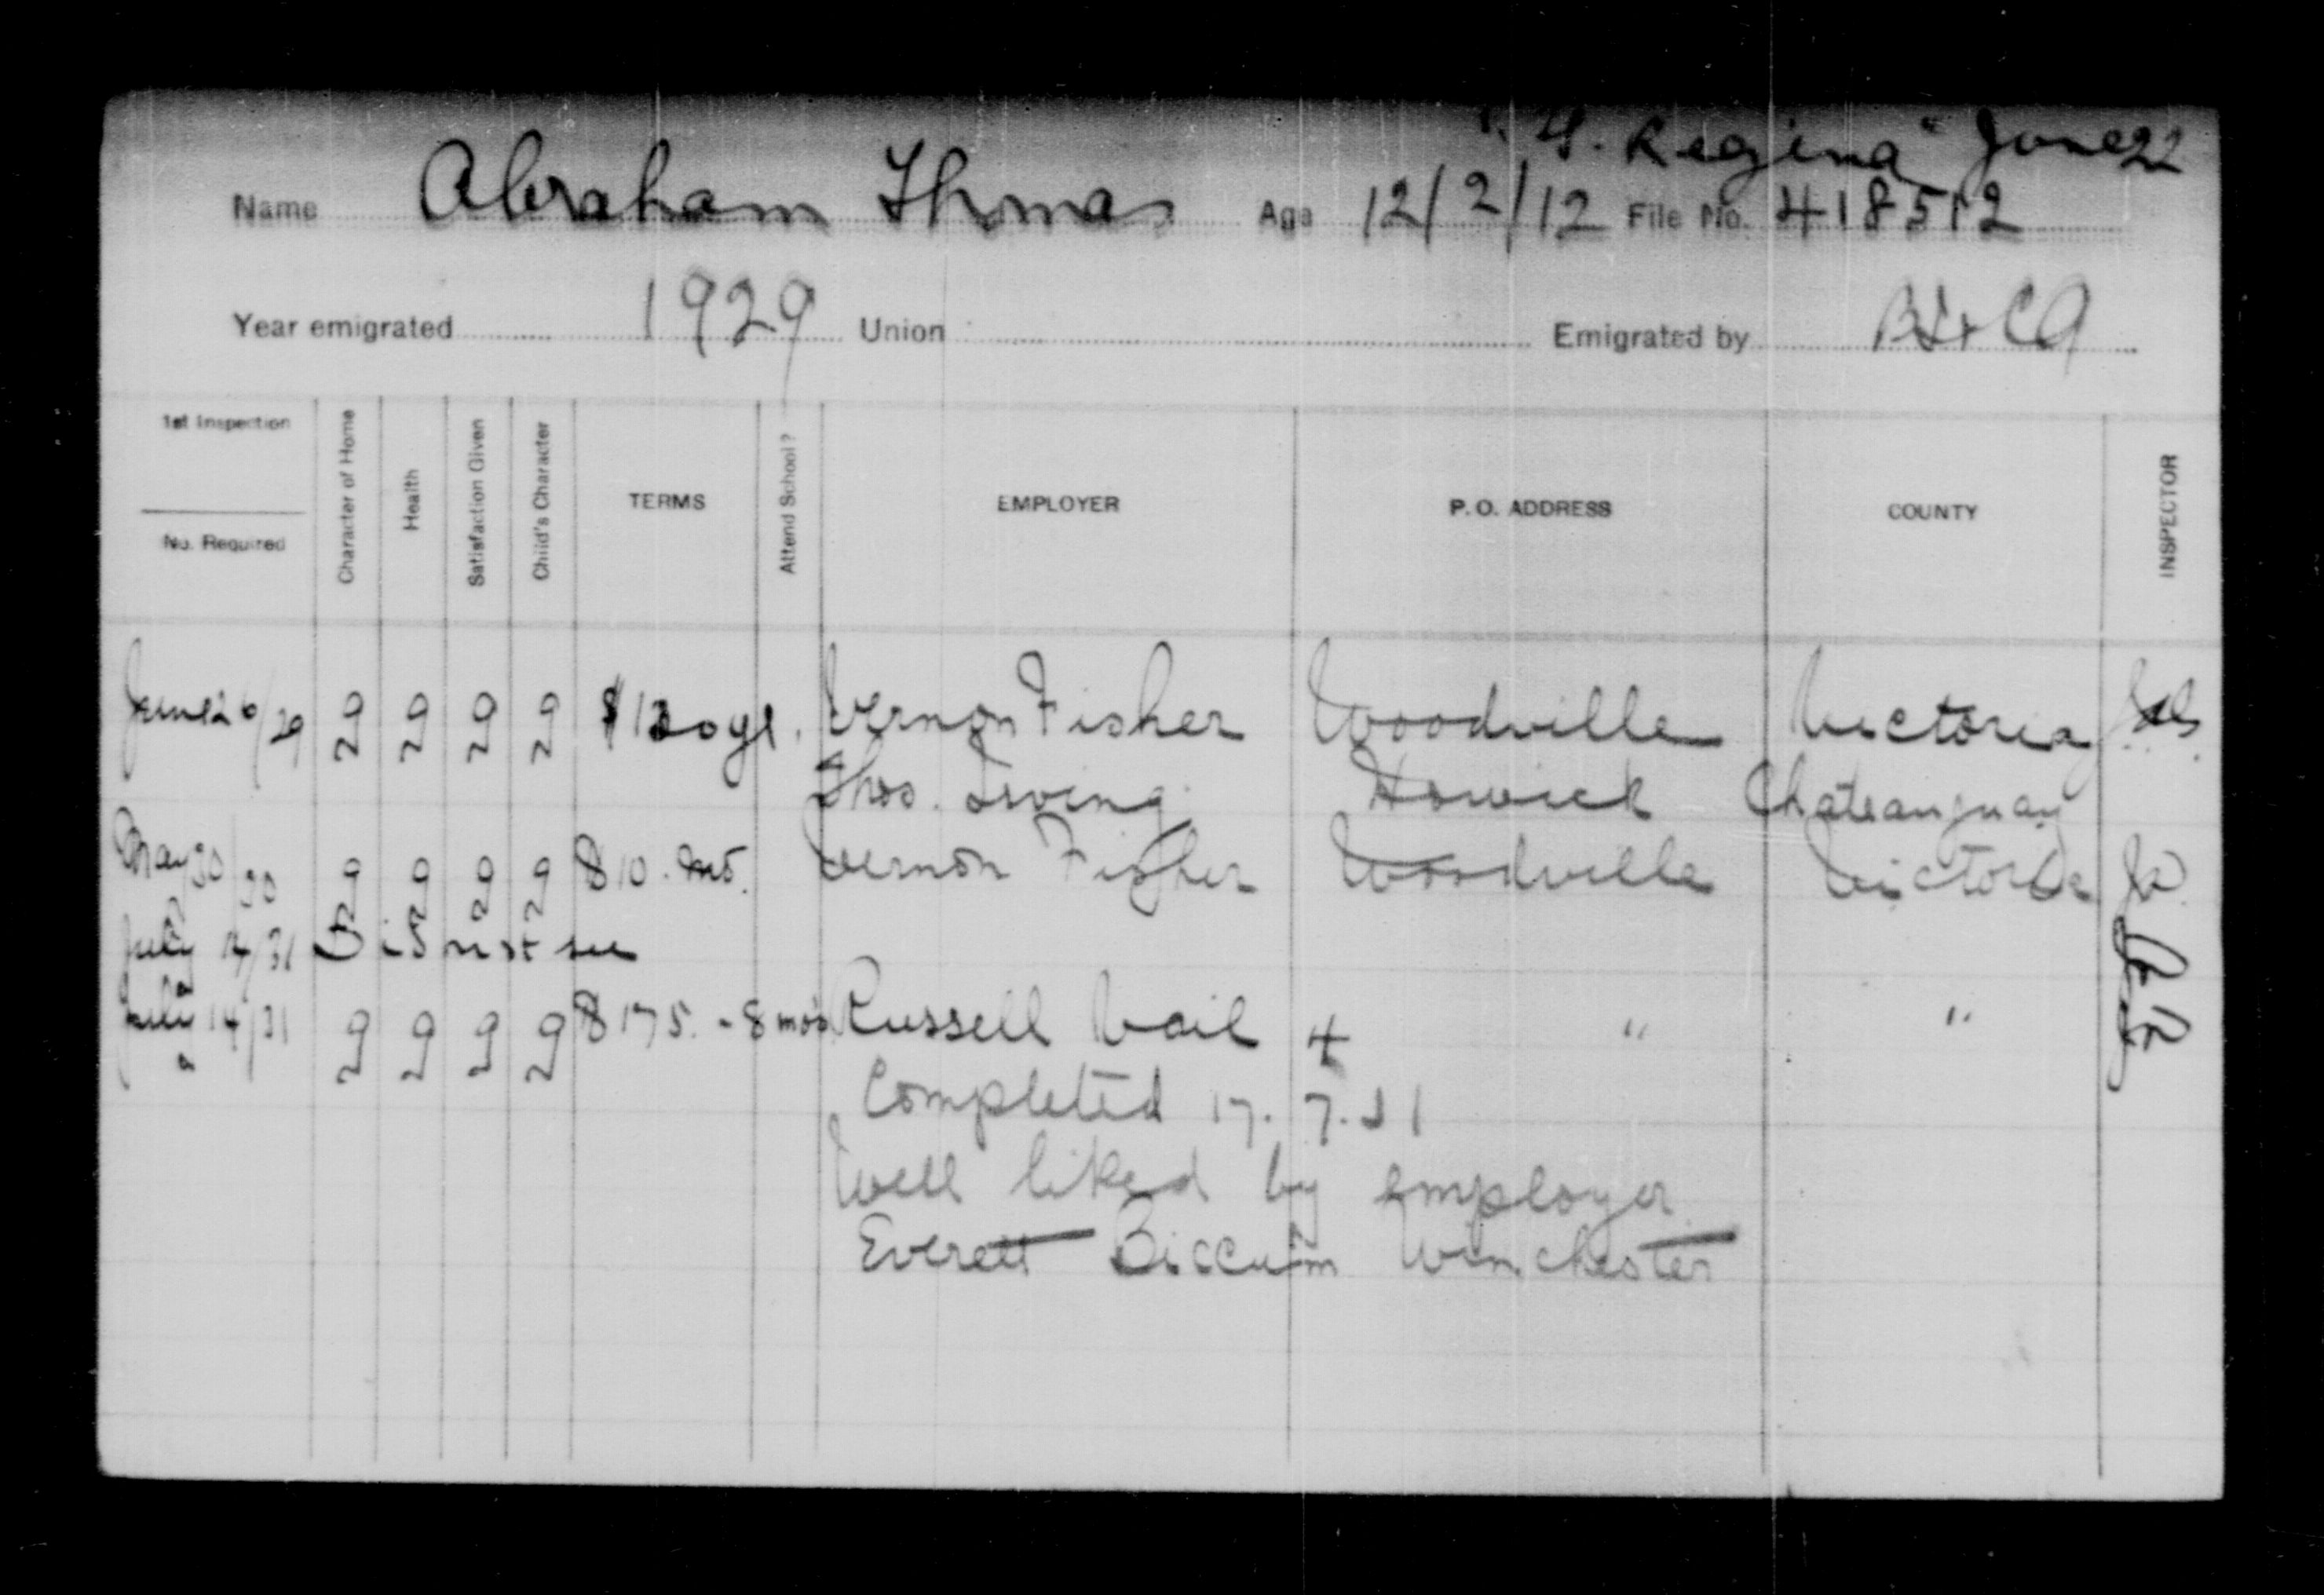 "Regina" June 22
Name Abraham Thomas Age 12/2/12 File No. 418512
Year emigrated 1929 Union Emigrated by
1st Inspection
No. Required
Character of Home
Health
Satisfaction Given
Child's Character
TERMS
Attend School?
EMPLOYER
P. O. ADDRESS
COUNTY
INSPECTOR
June 26/29 g g g g $120 yr. Vernon Fisher Woodville Victoria
Thos. Irving Howick Chateauguay
May 30/30 g g g g $10. mo. Vernon Fisher Woodville Victoria
July 14/31 Did not see
July 14/31 g g g g $175. - 8 mos Russell Vail " "
Completed 17. 7. 31
Well liked by employer
Everett Biccum Winchester